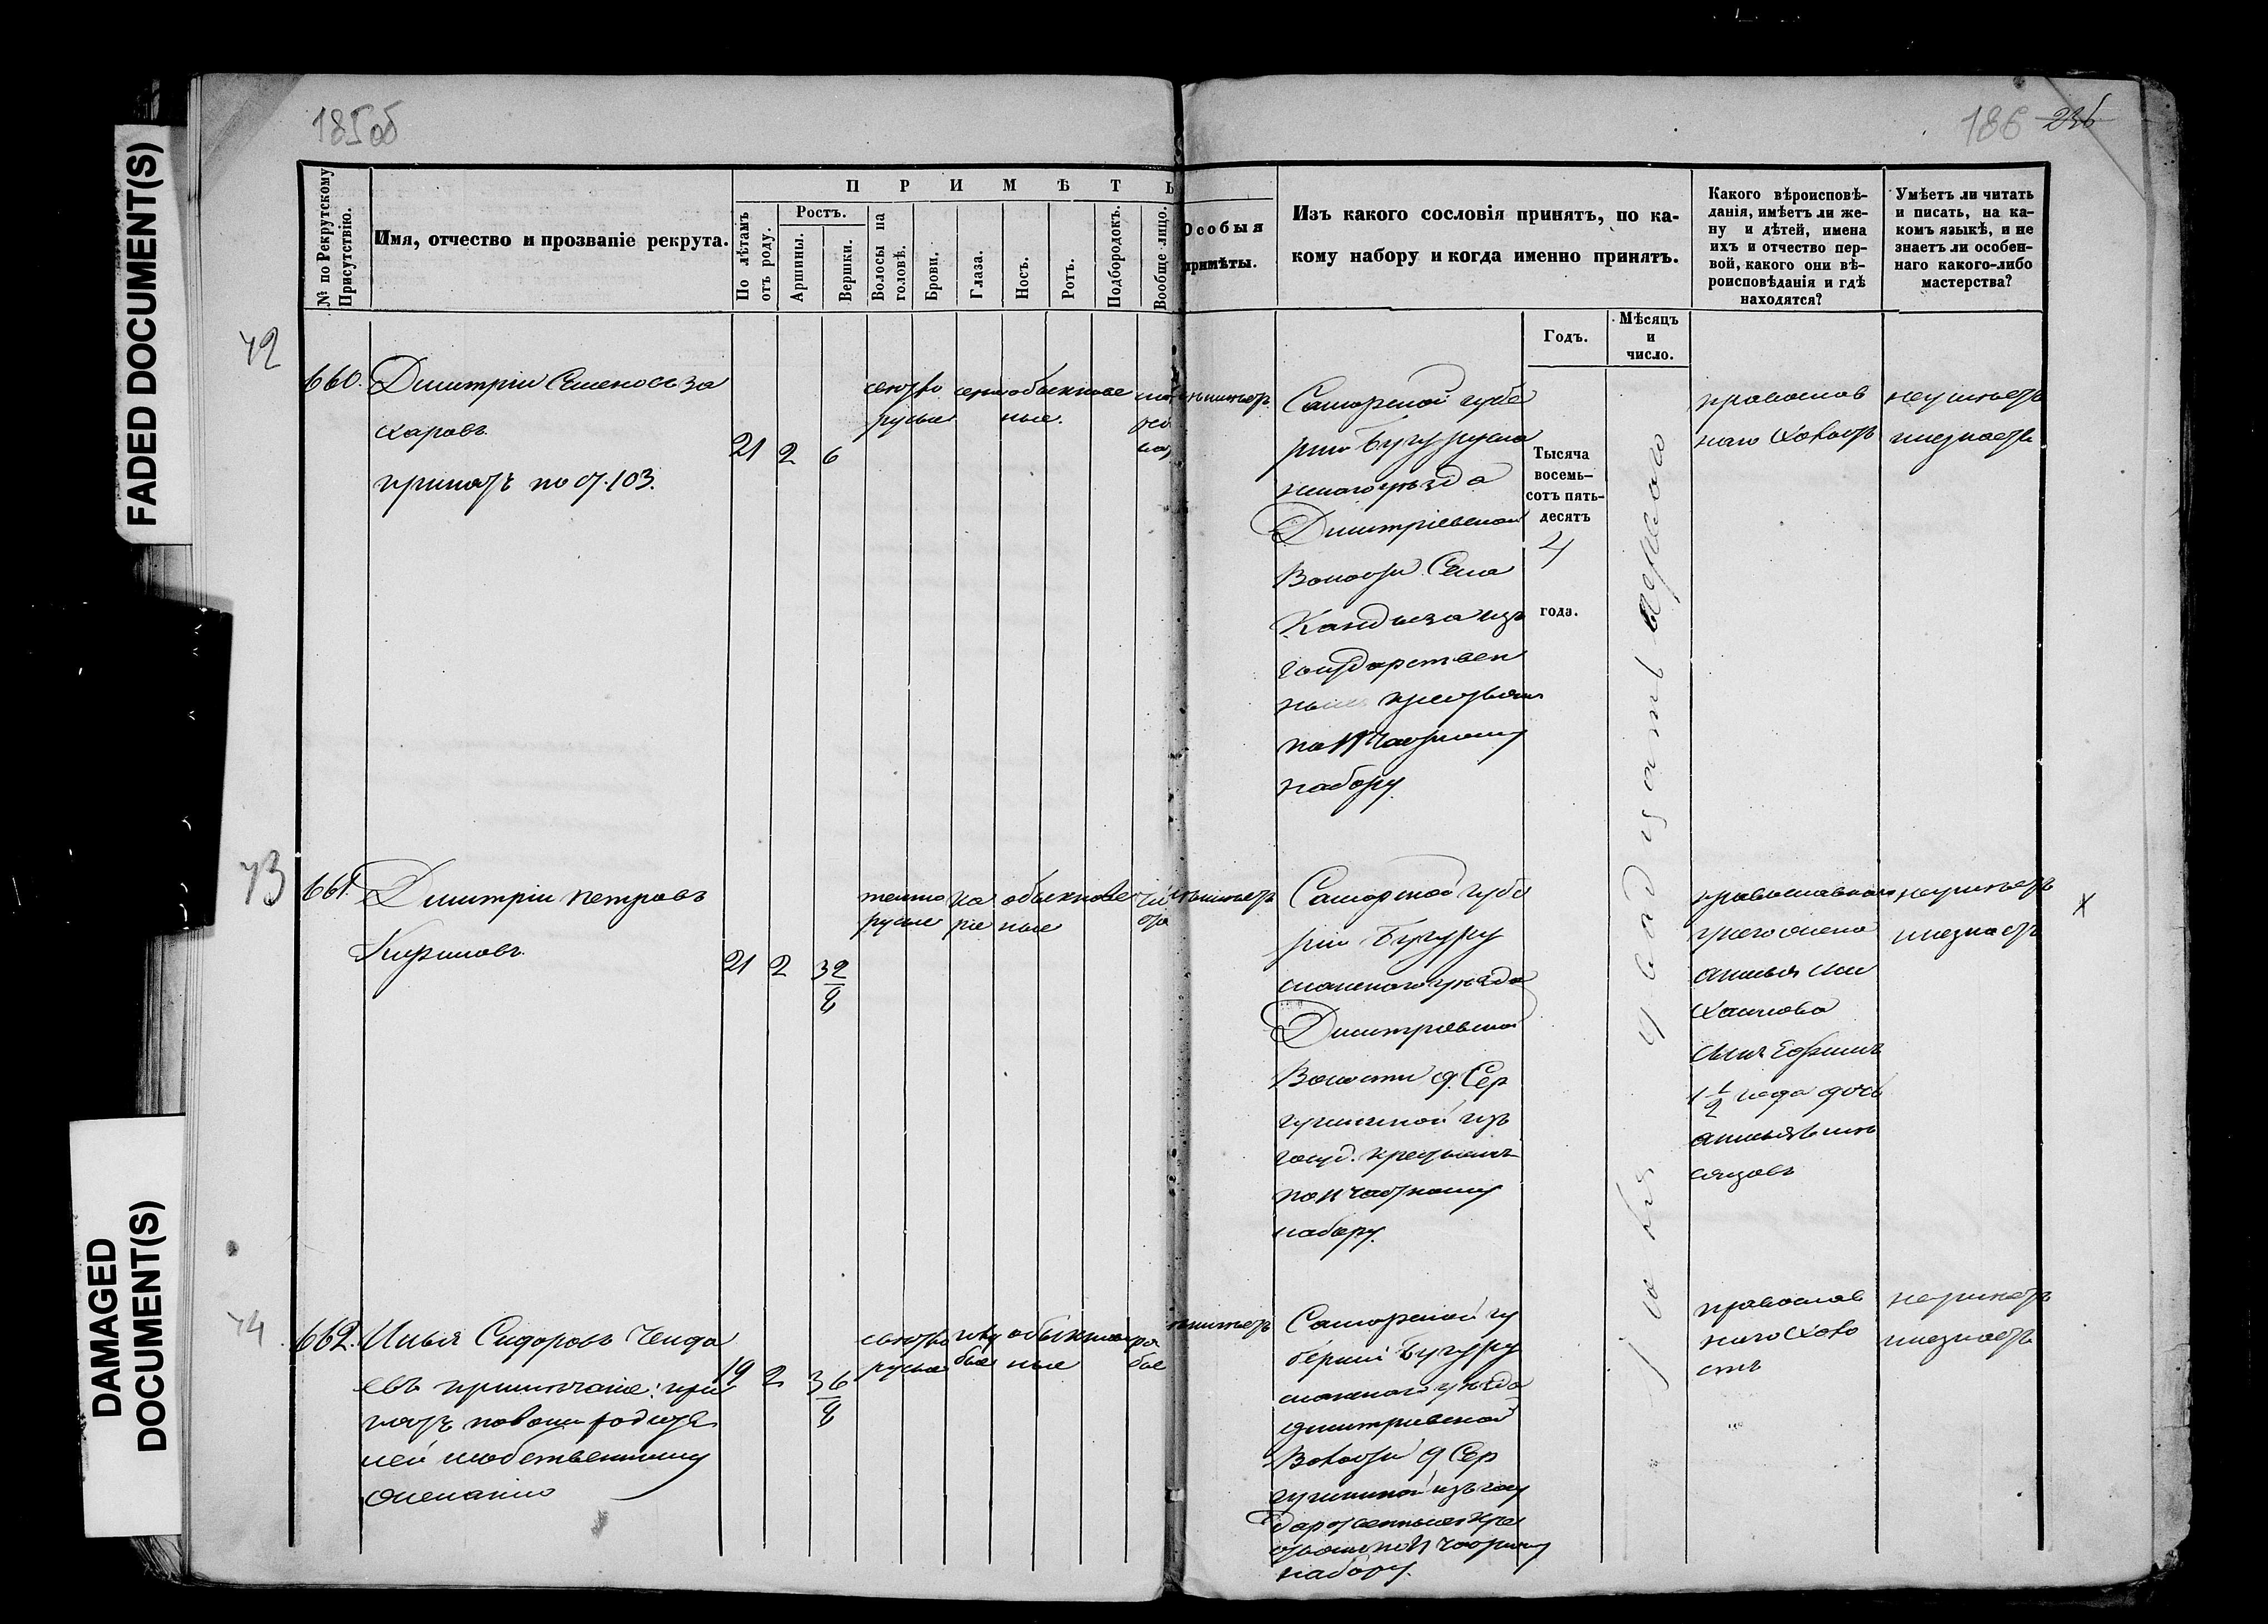 FADED DOCUMENT(S)
DAMAGED
DOCUMENT(S)
185об
186 236
№ по Рекрутскому
Присутствію.
Имя, отчество и прозваніе рекрута.
П Р И М Ѣ Т Ы
По лѣтамъ
отъ роду.
Ростъ.
Аршины.
Вершки.
Волосы на
головѣ.
Брови.
Глаза.
Носъ.
Ротъ.
Подбородокъ.
Вообще лицо.
Особыя
примѣты.
Изъ какого сословія принятъ, по ка-
кому набору и когда именно принятъ.
Годъ.
Мѣсяцъ
и
число.
Какого вѣроисповѣ-
данія, имѣетъ ли же-
ну и дѣтей, имена
ихъ и отчество пер-
вой, какого они вѣ-
роисповѣданія и гдѣ
находятся?
Умѣетъ ли читать
и писать, на ка-
комъ языкѣ, и не
знаетъ ли особен-
наго какого-либо
мастерства?
Тысяча
восемь-
сотъ пять-
десятъ
4
года.
72
660.
Димитрій Семеновъ За
харовъ
принятъ по ст. 103.
21 2 6
свѣтло
русые
обыкнове
ные.
неимѣетъ
Самарской губе
рніи Бугурусла
нскаго уѣзда
Димитріевской
Волости Села
Кандыза изъ
государствен
ныхъ крестьянъ
по 11 частному
набору.
православ
наго холостъ
неумѣетъ
инезнаетъ
73
661.
Димитрій Петровъ
Кириловъ.
21 2 3 2/8
темно
русые
ка
ріе
обыкнове
ные
чи
сто
неимѣетъ
Самарской губе
рніи Бугуру
сланскаго уѣзда
Димитріевской
Волости д. Сер
гушкиной изъ
госуд. крестьянъ
по 11 частному
набору.
православнаго
унего жена
хаилова
сынъ Ефимъ
1 1/2 года дочь
сяцовъ
неумѣетъ
инезнаетъ
х
74
662.
Илья Сидоровъ Чинда
евъ примѣчаніе: при
нятъ поволи родите
лей исобственному
желанію
19 2 3 6/8
свѣтло
русые
голу
бые
обыкнове
ные
ря
бое
неимѣетъ
Самарской гу
берніи Бугуру
сланскаго уѣзда
димитріевской
Волости д Сер
гушкиной изъ госу
дарственныхъ кре
стьянъ по 11 частному
набору.
православ
наго холо
стъ
неумѣетъ
инезнаетъ